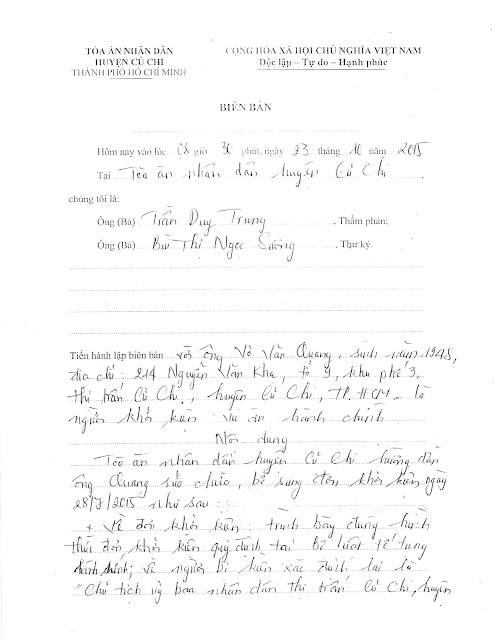 TÒA ÁN NHÂN DÂN
HUYỆN CỦ CHI
THÀNH PHỐ HỒ CHÍ MINH
CỘNG HÒA XÃ HỘI CHỦ NGHĨA VIỆT NAM
Độc lập – Tự do – Hạnh phúc
BIÊN BẢN
Hôm nay vào lúc 08 giờ 30 phút, ngày 23 tháng 10 năm 2015
Tại Tòa án nhân dân huyện Củ Chi
chúng tôi là:
Ông (Bà) Trần Duy Trung, Thẩm phán;
Ông (Bà) Bùi Thị Ngọc Sương, Thư ký.
Tiến hành lập biên bản với ông Võ Văn Quang, sinh năm 1948,
địa chỉ: 214 Nguyễn Văn Khạ, tổ 9, khu phố 3,
thị trấn Củ Chi, huyện Củ Chi, TP. HCM là
người khởi kiện vụ án hành chính
Nội dung
Tòa án nhân dân huyện Củ Chi hướng dẫn
ông Quang sửa chữa, bổ sung đơn khởi kiện ngày
28/7/2015 như sau:
+ Về đơn khởi kiện: trình bày đúng hình
thức đơn khởi kiện quy định tại Bộ luật tố tụng
hành chính; về người bị kiện xác định lại là
"Chủ tịch ủy ban nhân dân thị trấn Củ Chi, huyện